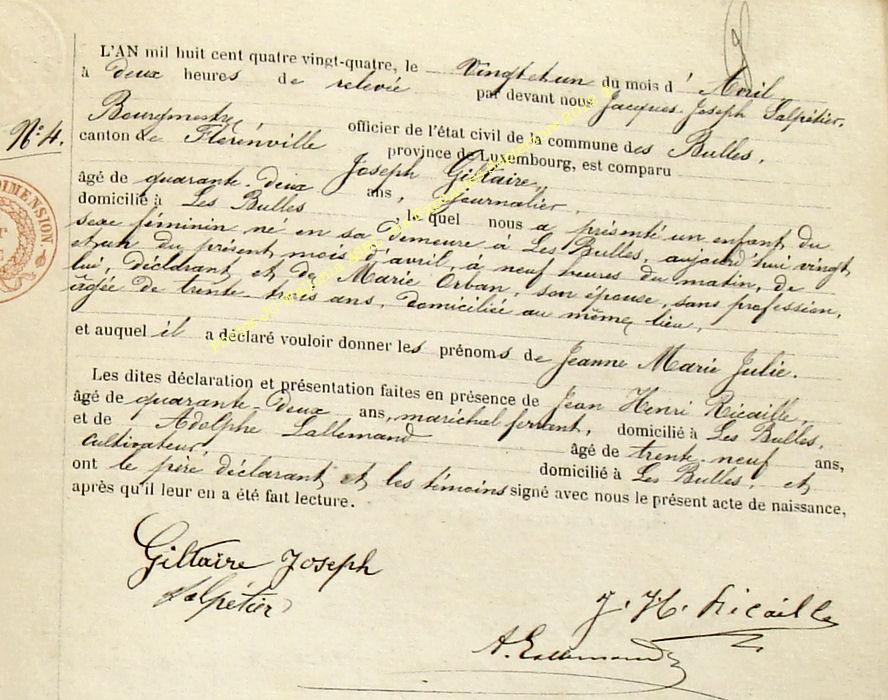 L'AN mil huit cent quatre vingt-quatre, le vingt et un du mois d'Avril
à deux heures de relevée par devant nous Jacques Joseph Salpétier,
Bourgmestre, officier de l'état civil de la commune des Bulles,
N° 4.
canton de Florenville province de Luxembourg, est comparu
Joseph Giltaire,
âgé de quarante-deux ans, Journalier,
domicilié à Les Bulles, le quel nous a présenté un enfant du
sexe féminin né en sa demeure à Les Bulles, aujourd'hui vingt
et un du présent mois d'avril, à neuf heures du matin, de
lui, déclarant et de Marie Orban, son épouse, sans profession,
âgée de trente-trois ans, domiciliée au même lieu,
et auquel il a déclaré vouloir donner les prénoms de Jeanne Marie Julie.
Les dites déclaration et présentation faites en présence de Jean Henri Ricaille,
âgé de quarante-deux ans, maréchal ferrant, domicilié à Les Bulles,
et de Adolphe Lallemand âgé de trente-neuf ans,
cultivateur, domicilié à Les Bulles, et
ont le père déclarant et les témoins signé avec nous le présent acte de naissance,
après qu'il leur en a été fait lecture.
Giltaire Joseph
Salpétier
J. H. Ricaille
A. Lallemand
DIMENSION